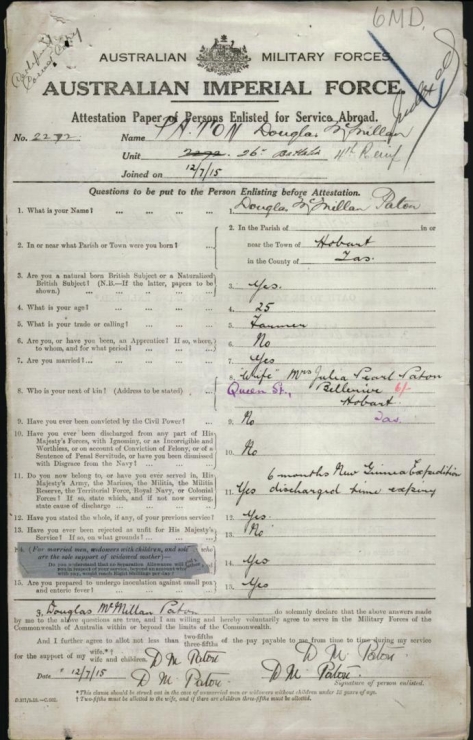 6MD.
AUSTRALIAN MILITARY FORCES
AUSTRALIAN IMPERIAL FORCE.
Attestation Paper of Persons Enlisted for Service Abroad.
No. 2272 Name PATON Douglas McMillan
Unit 26th Battalion 4th Reinf
Joined on 12/7/15
Questions to be put to the Person Enlisting before Attestation.
1. What is your Name? ... 1. Douglas McMillan Paton
2. In or near what Parish or Town were you born? ... 2. In the Parish of in or
near the Town of Hobart
in the County of Tas.
3. Are you a natural born British Subject or a Naturalized
British Subject? (N.B.—If the latter, papers to be
shown.) ... 3. Yes.
4. What is your age? ... 4. 25
5. What is your trade or calling? ... 5. Farmer
6. Are you, or have you been, an Apprentice? If so, where,
to whom, and for what period? ... 6. No
7. Are you married? ... 7. Yes
8. Who is your next of kin? (Address to be stated) 8. Wife Mrs Julia Pearl Paton
Queen St, Bellerive
Hobart
Tas.
9. Have you ever been convicted by the Civil Power? ... 9. No
10. Have you ever been discharged from any part of His
Majesty's Forces, with Ignominy, or as Incorrigible and
Worthless, or on account of Conviction of Felony, or of a
Sentence of Penal Servitude, or have you been dismissed
with Disgrace from the Navy? ... 10. No
11. Do you now belong to, or have you ever served in, His
Majesty's Army, the Marines, the Militia, the Militia
Reserve, the Territorial Force, Royal Navy, or Colonial
Forces? If so, state which, and if not now serving,
state cause of discharge ... 11. Yes 6 months New Guinea Expedition
discharged time expiry
12. Have you stated the whole, if any, of your previous service? 12. Yes
13. Have you ever been rejected as unfit for His Majesty's
Service? If so, on what grounds? ... 13. No
14. (For married men, widowers with children, and soldiers who
are the sole support of widowed mother—
Do you understand that no Separation Allowance will
14. Yes
15. Are you prepared to undergo inoculation against small pox
and enteric fever? ... 15. Yes
I, Douglas McMillan Paton do solemnly declare that the above answers made
by me to the above questions are true, and I am willing and hereby voluntarily agree to serve in the Military Forces of the
Commonwealth of Australia within or beyond the limits of the Commonwealth.
And I further agree to allot not less than two-fifths three-fifths of the pay payable to me from time to time during my service
for the support of my wife.*† wife and children. D M Paton D M Paton
Date 12/7/15 D M Paton D M Paton
Signature of person enlisted.
*This clause should be struck out in the case of unmarried men or widowers without children under 18 years of age.
†Two-fifths must be allotted to the wife, and if there are children three-fifths must be allotted.